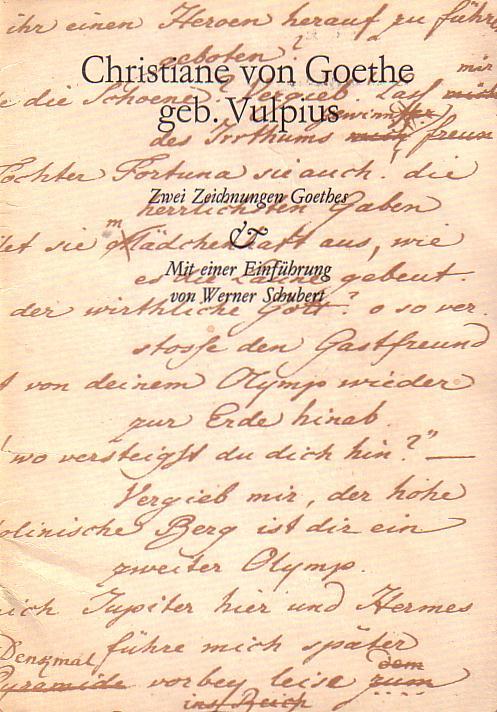 ihr einen Heroen herauf zu führen
geboten?
Christiane von Goethe
mir
die Schoene? Vergieb. Lass mich
geb. Vulpius
gewinnst
des Irrthums mich freun
Tochter Fortuna sie auch. die
Zwei Zeichnungen Goethes
herrlichsten Gaben
&
let sie Mädchenhaft aus, wie
Mit einer Einführung
es die Laune gebeut.
von Werner Schubert
der wirthliche Gott? o so ver
stosse den Gastfreund
von deinem Olymp wieder
zur Erde hinab.
wo versteigst du dich hin?" —
Vergieb mir, der hohe
olinische Berg ist dir ein
zweiter Olymp.
ich Jupiter hier und Hermes
Denkmal führe mich später
dem
Pyramide vorbey leise zum
ins Reich